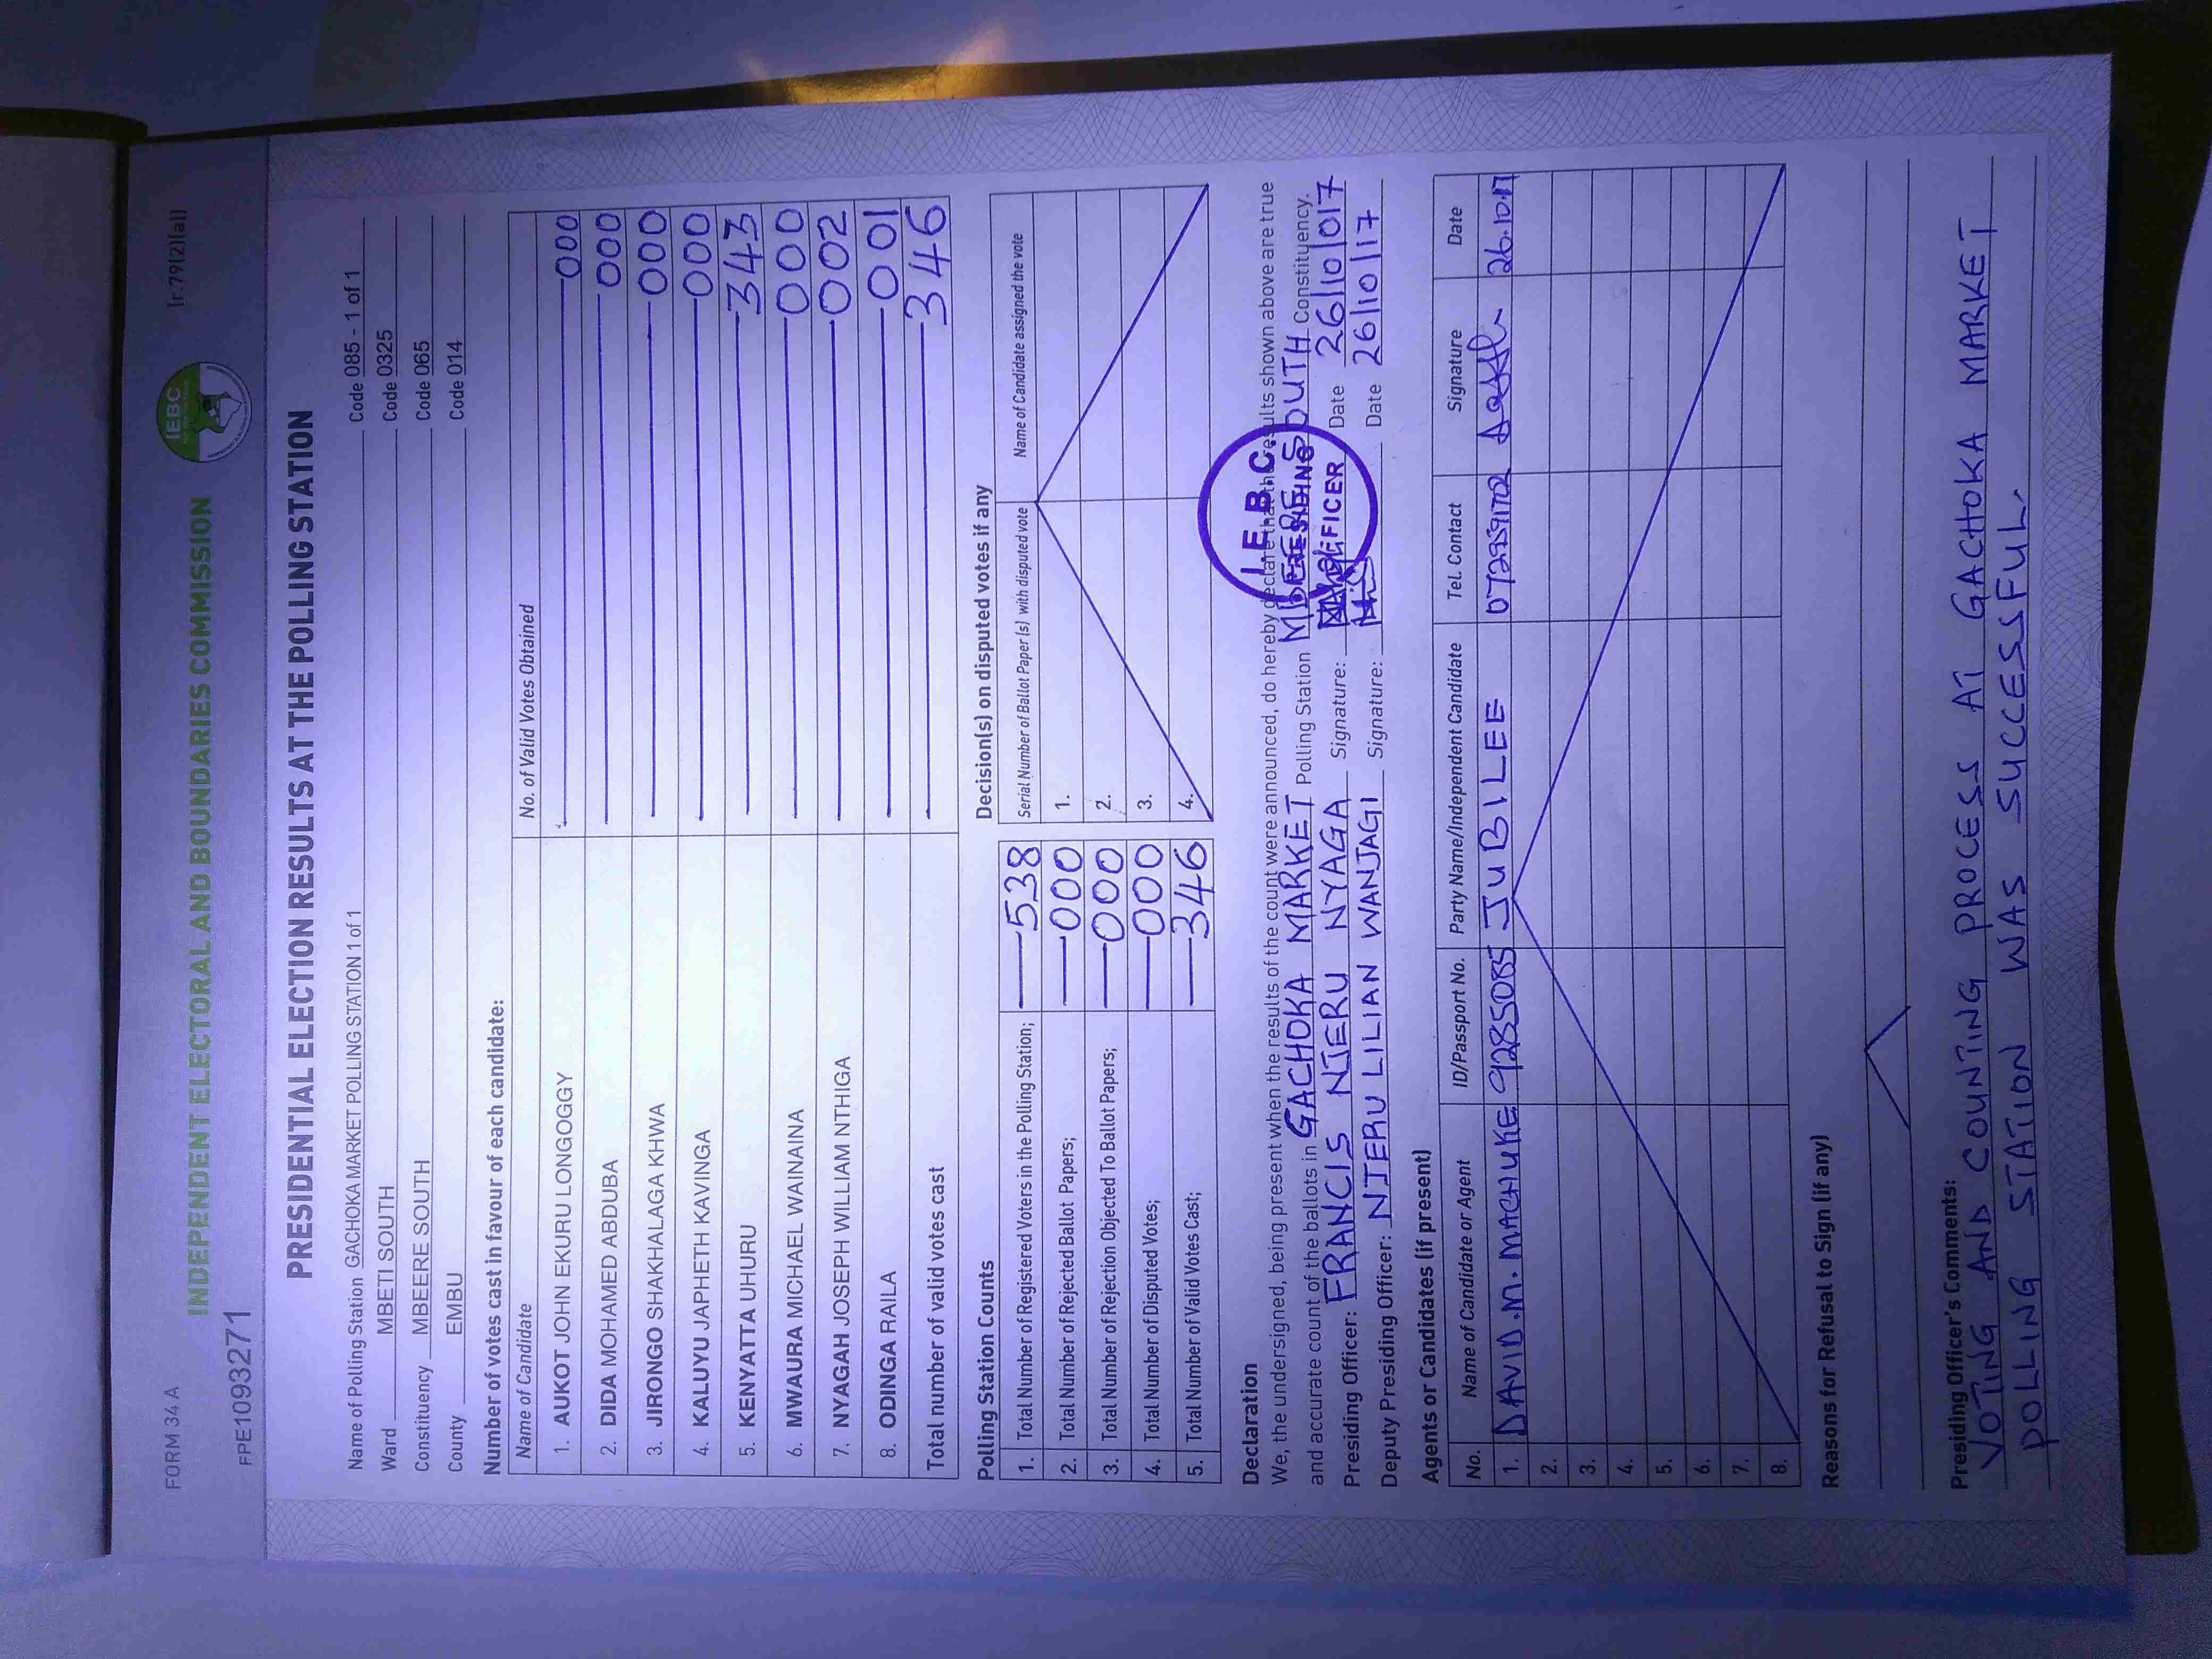 FORM 34 A
[r.79(2)(a)]
IEBC
INDEPENDENT ELECTORAL AND BOUNDARIES COMMISSION
FPE1093271
PRESIDENTIAL ELECTION RESULTS AT THE POLLING STATION
Name of Polling Station GACHOKA MARKET POLLING STATION 1 of 1 Code 085 - 1 of 1
Ward MBETI SOUTH Code 0325
Constituency MBEERE SOUTH Code 065
County EMBU Code 014
Number of votes cast in favour of each candidate:
Name of Candidate No. of Valid Votes Obtained
1. AUKOT JOHN EKURU LONGOGGY 000
2. DIDA MOHAMED ABDUBA 000
3. JIRONGO SHAKHALAGA KHWA 000
4. KALUYU JAPHETH KAVINGA 000
5. KENYATTA UHURU 343
6. MWAURA MICHAEL WAINAINA 000
7. NYAGAH JOSEPH WILLIAM NTHIGA 002
8. ODINGA RAILA 001
Total number of valid votes cast 346
Polling Station Counts
1. Total Number of Registered Voters in the Polling Station; 538
2. Total Number of Rejected Ballot Papers; 000
3. Total Number of Rejection Objected To Ballot Papers; 000
4. Total Number of Disputed Votes; 000
5. Total Number of Valid Votes Cast; 346
Decision(s) on disputed votes if any
Serial Number of Ballot Paper (s) with disputed vote Name of Candidate assigned the vote
1.
2.
3.
4.
Declaration
We, the undersigned, being present when the results of the count were announced, do hereby declare that the results shown above are true
and accurate count of the ballots in GACHOKA MARKET Polling Station MBEERE SOUTH Constituency.
Presiding Officer: FRANCIS NJERU NYAGA Signature: Date 26/10/017
Deputy Presiding Officer: NJERU LILIAN WANJAGI Signature: Date 26/10/17
I.E.B.C.
PRESIDING
OFFICER
Agents or Candidates (if present)
No. Name of Candidate or Agent ID/Passport No. Party Name/Independent Candidate Tel. Contact Signature Date
1. DAVID.M.MACHUKE 9285085 JUBILEE 26.10.17
2.
3.
4.
5.
6.
7.
8.
Reasons for Refusal to Sign (if any)
Presiding Officer's Comments:
VOTING AND COUNTING PROCESS AT GACHOKA MARKET
POLLING STATION WAS SUCCESSFUL.